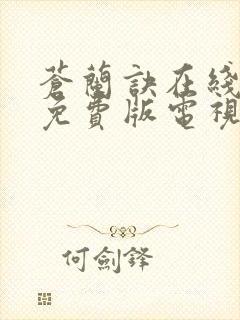 蒼蘭訣在綫
免費版電視
何劍鋒